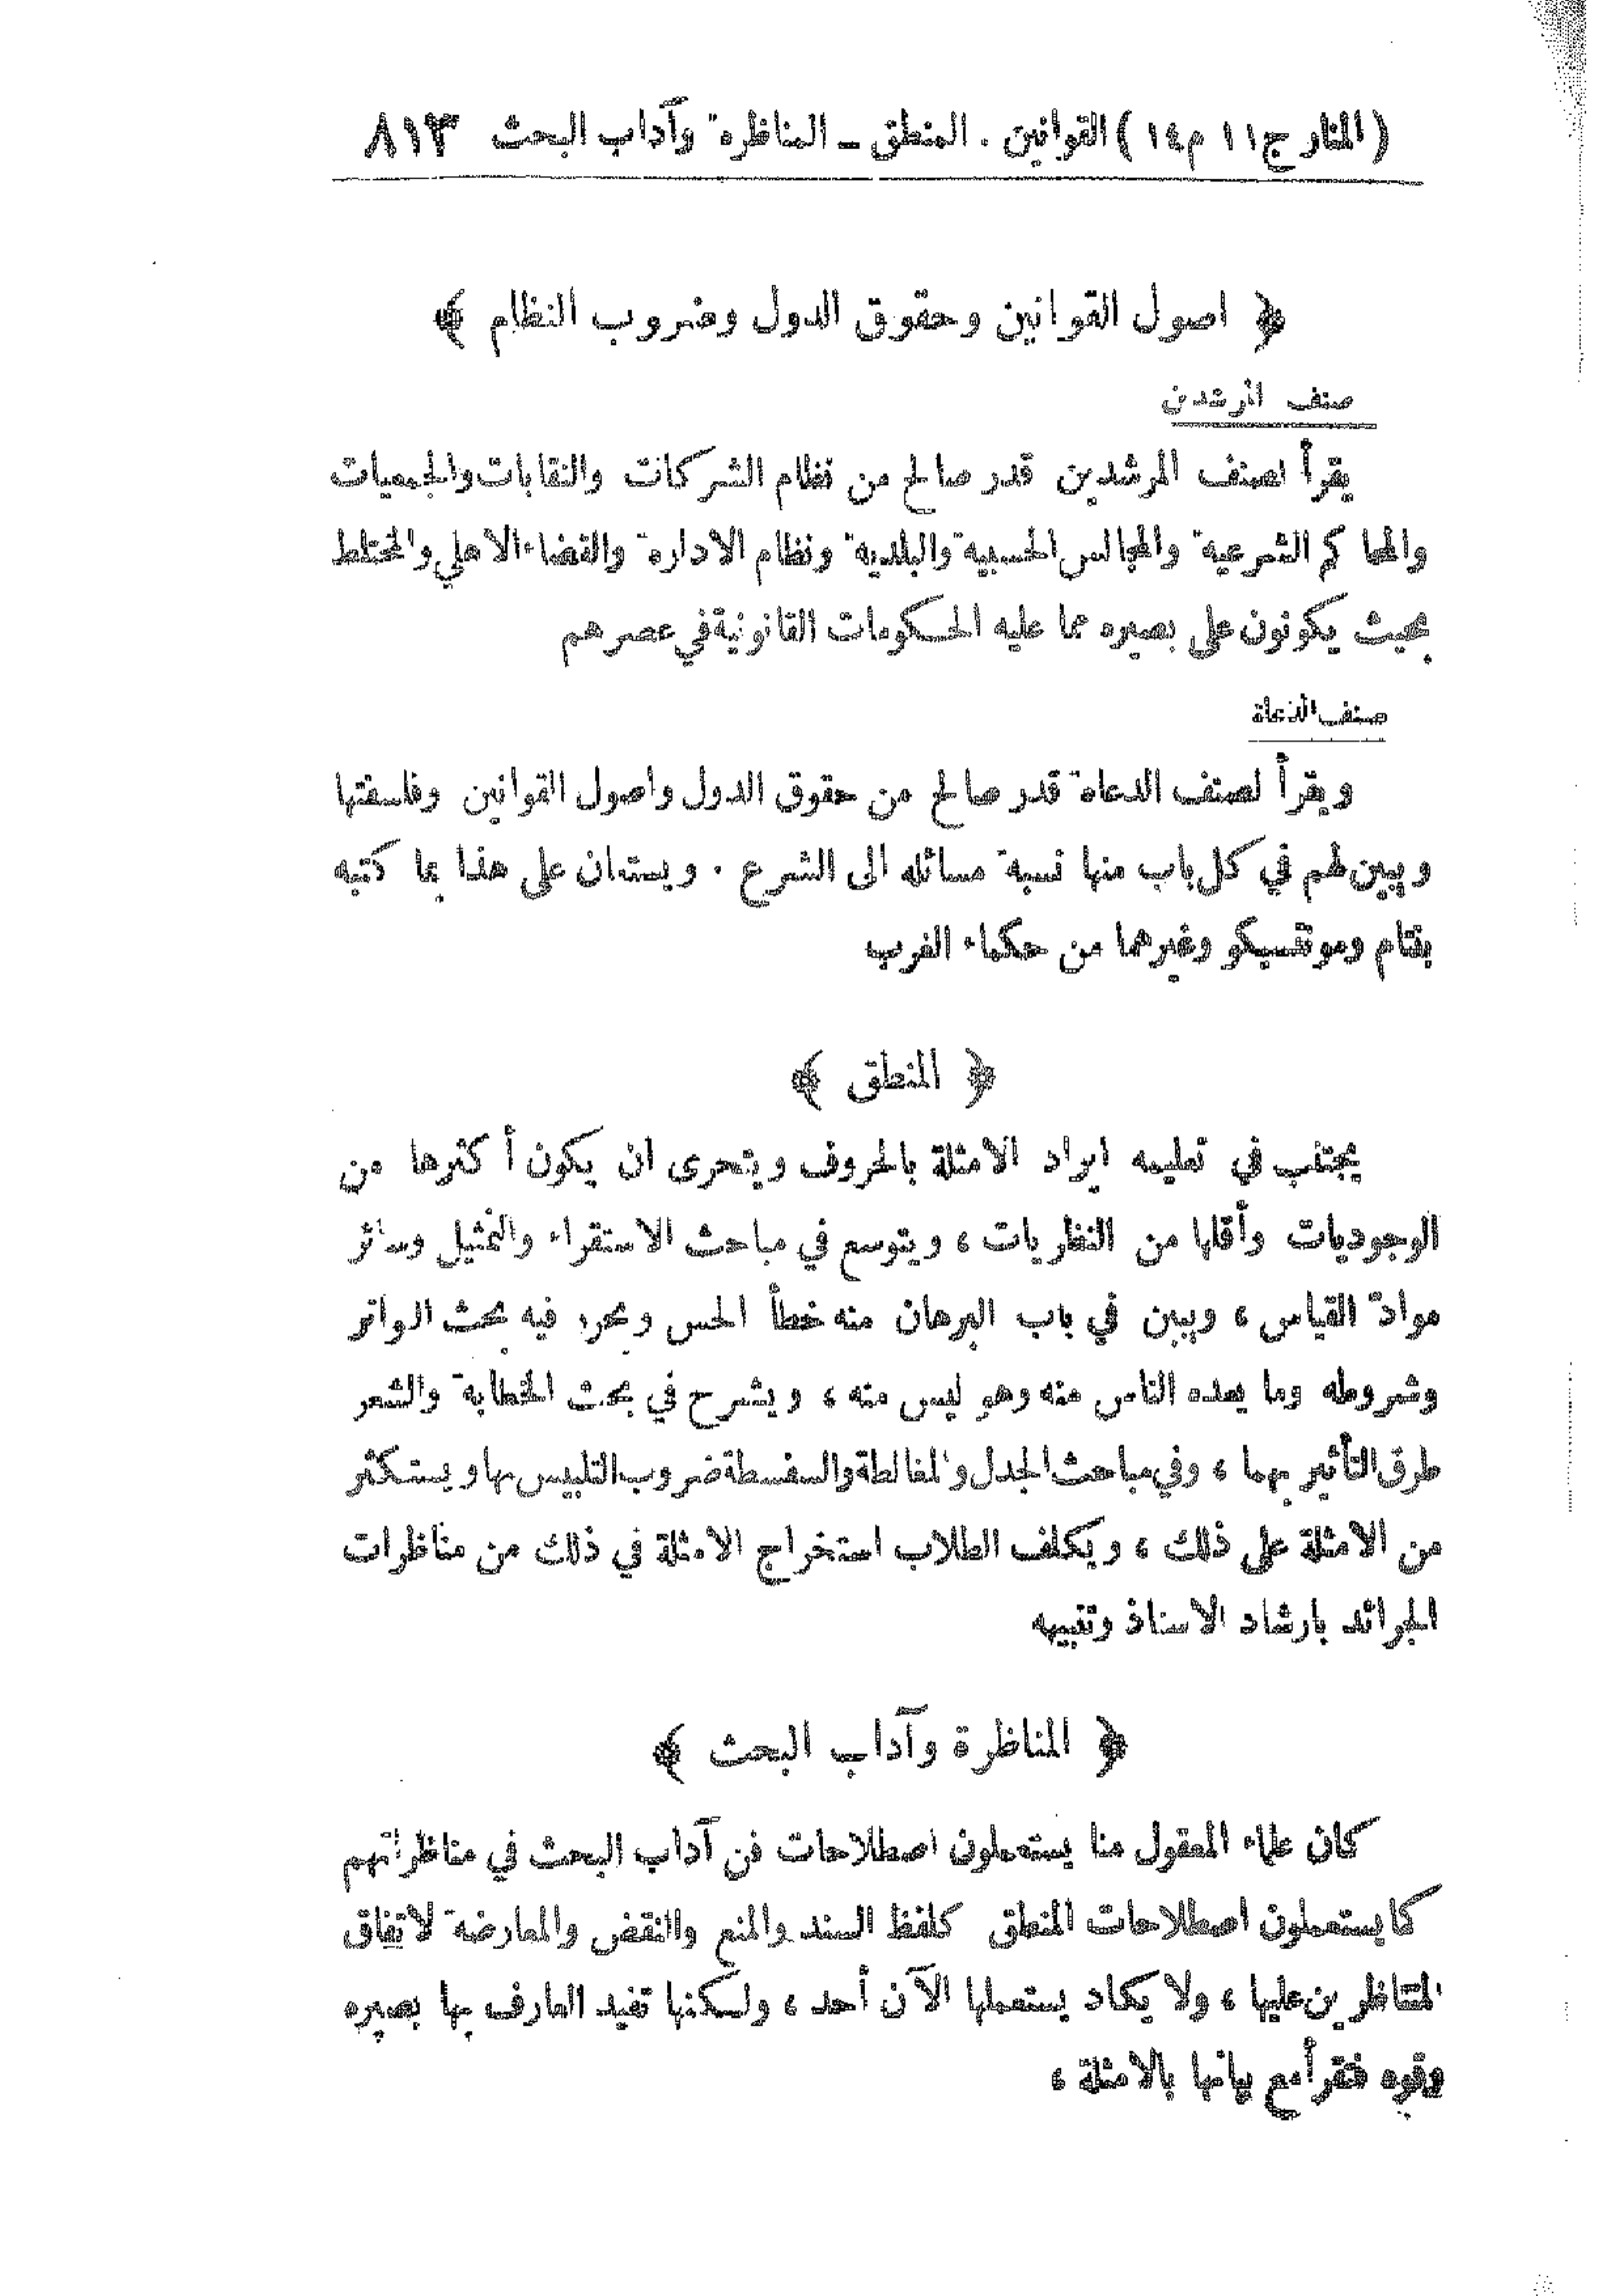 (المنار ج١١ م١٤) القوانين . المنطق ــ المناظرة وآداب البحث ٨١٣
﴿ اصول القوانين وحقوق الدول وضروب النظام ﴾
صنف المرشدين
يقرأ لصنف المرشدين قدر صالح من نظام الشركات والنقابات والجمعيات
والمحاكم الشرعية والمجالس الحسبية والبلدية ونظام الادارة والقضاء الاهلي والمختلط
بحيث يكونون على بصيره مما عليه الحكومات القانونية في عصرهم
صنف الدعاة
ويقرأ لصنف الدعاة قدر صالح من حقوق الدول واصول القوانين وفلسفتها
ويبين لهم في كل باب منها نسبة مسائله الى الشرع . ويستعان على هذا بما كتبه
بنتام ومونتسيكو وغيرهما من حكماء الغرب
﴿ المنطق ﴾
يجتنب في تعليمه ايراد الامثلة بالحروف ويتحرى ان يكون أكثرها من
الوجوديات وأقلها من النظريات ، ويتوسع في مباحث الاستقراء والتمثيل وسائر
موادّ القياس ، ويبين في باب البرهان منه خطأ الحس ويحرر فيه بحث التواتر
وشروطه وما يعده الناس منه وهو ليس منه ، ويشرح في بحث الخطابة والشعر
طرق التأثير بهما ، وفي مباحث الجدل والمغالطة والسفسطة ضروب التلبيس بها ويستكثر
من الامثلة على ذلك ، ويكلف الطلاب استخراج الامثلة في ذلك من مناظرات
الجرائد بارشاد الاستاذ وتنبيهه
﴿ المناظرة وآداب البحث ﴾
كان علماء المعقول منا يستعملون اصطلاحات فن آداب البحث في مناظراتهم
كما يستعملون اصطلاحات المنطق كلفظ السند والمنع والنقض والمعارضة لاتفاق
المتناظرين عليها ، ولا يكاد يستعملها الآن أحد ، ولكنها تفيد العارف بها بصيره
وقوه فتقرأ مع بيانها بالامثلة ،